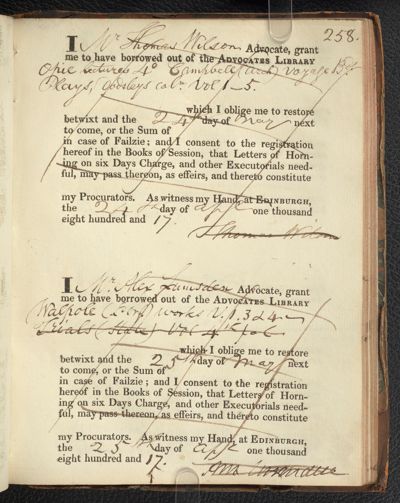 258.
I Mr Thomas Wilson Advocate, grant
me to have borrowed out of the ADVOCATES LIBRARY
Opie 4o Campbell (Arch) Voyage
Plays, Dodsleys Vol 1-5.
which I oblige me to restore
betwixt and the 24th day of May next
to come, or the Sum of
in case of Failzie; and I consent to the registration
hereof in the Books of Session, that Letters of Horn-
ing on six Days Charge, and other Executorials need-
ful, may pass thereon, as effeirs, and thereto constitute
my Procurators. As witness my Hand, at EDINBURGH,
the 24 day of Apl one thousand
eight hundred and 17.
Thomas Wilson
I Mr Alex Lumsden Advocate, grant
me to have borrowed out of the ADVOCATES LIBRARY
Walpole works V. 1. 3 & 4
Trials (State) Vol
which I oblige me to restore
betwixt and the 25th day of May next
to come, or the Sum of
in case of Failzie; and I consent to the registration
hereof in the Books of Session, that Letters of Horn-
ing on six Days Charge, and other Executorials need-
ful, may pass thereon, as effeirs, and thereto constitute
my Procurators. As witness my Hand, at EDINBURGH,
the 25 day of Apl one thousand
eight hundred and 17.
Lumsden